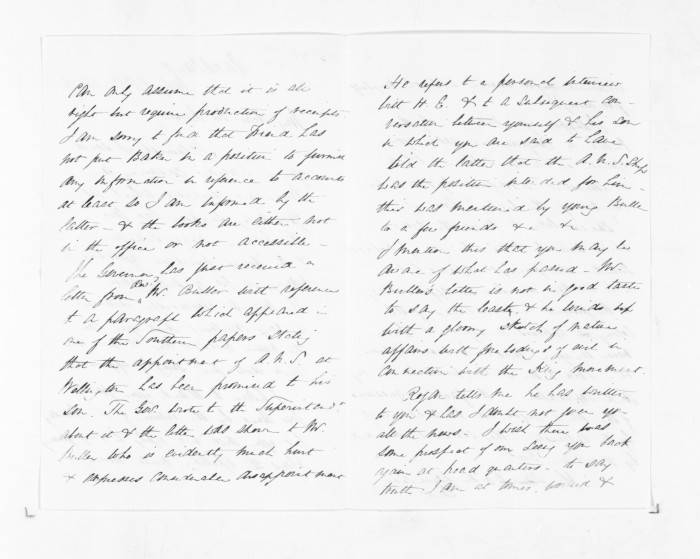 can only assume that it is all
right but require production of receipts
I am sorry to find that Mend has
not put Baker in a position to furnish
any information in reference to accounts
at least so I am informed by the
latter - & the books are either not
in the office or not accessible -
The Governor has just received a
letter from Revd Mr. Buller with reference
to a paragraph which appeared in
one of the Southern papers stating
that the appointment of A.N.S. at
Wellington has been promised to his
son. The Gov. wrote to the Superintendt
about it & the letter was shown to Mr.
Buller who is evidently much hurt
& expresses considerable disappointment
He refers to a personal interview
with H.E. & to a subsequent con-
versation between yourself & his son
in which you are said to have
told the latter that the A.N.S.ship
was the position intended for him -
this was mentioned by young Buller
to a few friends &c &
I mention this that you may be
aware of what has passed - Mr.
Buller's letter is not in good taste
to say the least, & he winds up
with a gloomy sketch of native
affairs with forebodings of evil in
connection with the King movement.
Rogan tells me he has written
to you & has I doubt not given you
all the news - I wish there was
some prospect of our seeing you back
again at head quarters - to say
truth I am at times &